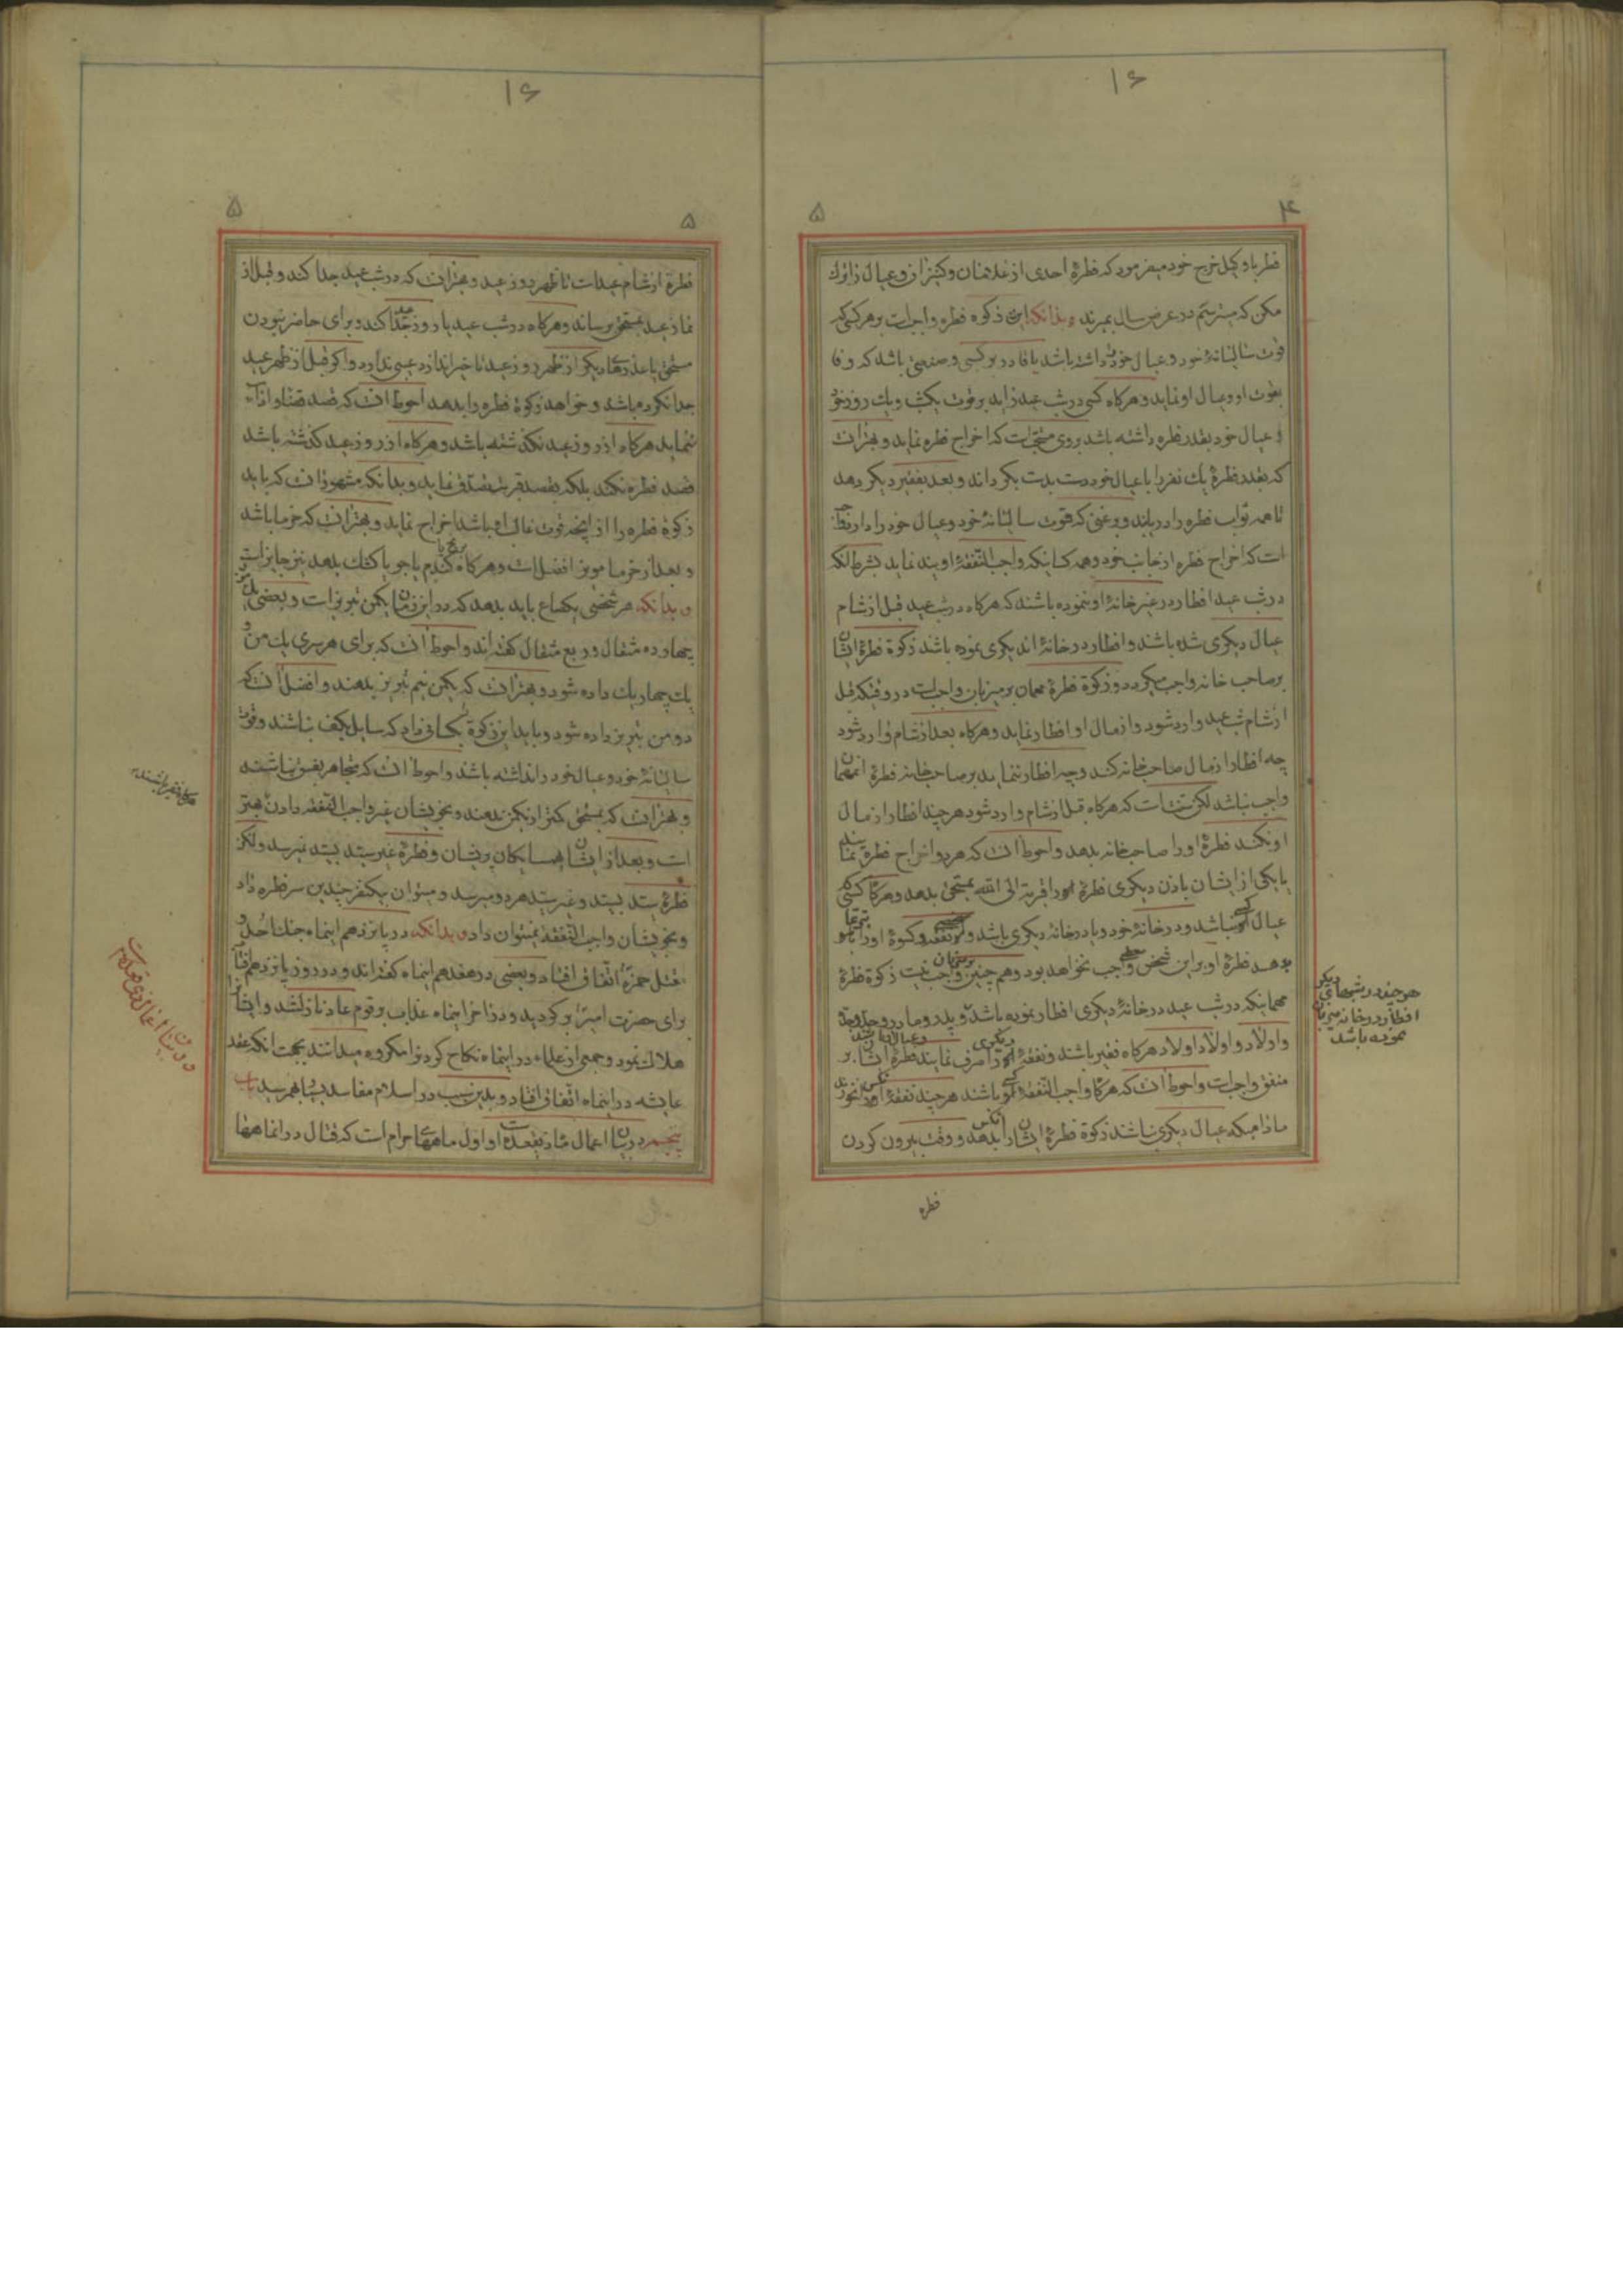 ۱۶
۴
۵
فطر با وکیل خرج خود میفرمود که فطرهٔ احدی از غلامان و کنیزان و عیال را ترک
مکن که میترسم در عرض سال بمیرند و بدانکه این زکوة فطره واجبست بر هر کسی که
قوت سالیانهٔ خود و عیال خود داشته باشد یا قادر بر کسبی و صنعتی باشد که وفا
بقوت او و عیال او نماید و هرگاه کسی در شب عید زاید بر قوت یکشب و یک روز خود
و عیال خود بقدر فطره داشته باشد بروی مستحبست که اخراج فطره نماید و بهتر آنست
که بقدر فطرهٔ یک نفر را با عیال خود دست بدست بگرداند و بعد بفقیر دیگر دهد
تا همه ثواب فطره را دریابند و بر غنی که قوت سالیانهٔ خود و عیال خود را دارد
است که اخراج فطره از جانب خود و همه کسانیکه واجب النفقهٔ اویند نماید بشرط آنکه
در شب عید افطار در غیر خانهٔ او ننموده باشند که هرگاه در شب عید قبل از شام
عیال دیگری شده باشند و افطار در خانهٔ اندیگری نموده باشد زکوة فطرهٔ ایشان
بر صاحب خانه واجب میگردد و زکوة فطرهٔ مهمان بر میزبان واجبست در وقتیکه قبل
از شام شب عید وارد شود و از مال او افطار نماید و هرگاه بعد از شام وارد شود
چه افطار از مال صاحب خانه کند و چه افطار ننماید بر صاحب خانه فطرهٔ انمهمان
واجب نباشد لکن سنت است که هرگاه قبل از شام وارد شود هر چند افطار از مال
او نکند فطرهٔ او را صاحب خانه بدهد و احوط آنست که هر دو اخراج فطره نمایند
یا یکی از ایشان باذن دیگری فطره را قربة الی الله بمستحق بدهد و هرگاه کسی که
عیال کسی نباشد و در خانهٔ خود و یا در خانهٔ دیگری باشد و نفقه و کسوهٔ او را تبرعا
بدهد فطرهٔ او بر این شخص واجب نخواهد بود و هم چنین بر میزبان واجب نیست زکوة فطرهٔ
مهمانیکه در شب عید در خانهٔ دیگری افطار نموده باشد و پدر و مادر و جد و جده
و اولاد و اولاد اولاد هرگاه فقیر باشند و نفقهٔ دیگری را صرف نمایند فطرهٔ ایشان بر
منفق واجبست و احوط آنست که هرگاه واجب النفقهٔ کسی باشند هر چند نفقهٔ انکس را نخورند
مادامیکه عیال دیگری نباشند زکوة فطرهٔ ایشان را انکس بدهد و وقت بیرون کردن
هر چند در شبهای دیگر
افطار در خانه میزبان
نموده باشد
فطره
۱۶
۵
۵
فطره از شام عید است تا ظهر روز عید و بهتر آنست که در شب عید جدا کند و قبل از
نماز عید بمستحق برساند و هرگاه در شب عید یا روز عید جدا کند و برای حاضر نبودن
مستحق یا عذرهای دیگر از ظهر روز عید تاخیر اندازد عیبی ندارد و اگر قبل از ظهر عید
جدا نکرده باشد و خواهد زکوة فطره را بدهد احوط آنست که قصد قضا و اداء
ننماید هرگاه از روز عید نگذشته باشد و هرگاه از روز عید گذشته باشد
قصد فطره نکند بلکه بقصد قربت تصدق نماید و بدانکه مشهور آنست که باید
زکوة فطره را از آنچه قوت غالب او باشد اخراج نماید و بهتر آنست که خرما باشد
و بعد از خرما مویز افضل است و هرگاه برنج یا گندم یا جو یا کشک بدهد نیز جایز است
و بدانکه هر شخصی یکصاع باید بدهد که در این زمان یکمن تبریز است و بعضی
چهارده مثقال و ربع مثقال گفته اند و احوط آنست که برای هر سری یک من و
یک چهاریک داده شود و بهتر آنست که یکمن نیم تبریز بدهند و افضل آنست که
دو من تبریز داده شود و باید این زکوة بکسانی داد که سایل بکف نباشند و قوت
سالیانهٔ خود و عیال خود را نداشته باشد و احوط آنست که متجاهر بفسق نباشند
و بهتر آنست که بمستحق کمتر از یکمن ندهند و بخویشان غیر واجب النفقه دادن بهتر
است و بعد از ایشان همسایگان پریشان و فطرهٔ غیر سید بسید نمیرسد ولکن
فطرهٔ سید بسید و غیر سید هر دو میرسد و میتوان بیکنفر چندین سر فطره داد
و بخویشان واجب النفقه نمیتوان داد و بدانکه در پانزدهم اینماه جنک احد و
قتل حمزه اتفاق افتاد و بعضی در هفدهم اینماه گفته اند و در روز پانزدهم
برای حضرت امیر برگردید و در آخر اینماه عذاب بر قوم عاد نازل شد و ایشان را
هلاک نمود و جمعی از علماء در اینماه نکاح کردن را مکروه میدانند بجهت آنکه عقد
عایشه در اینماه اتفاق افتاد و بدین سبب در اسلام مفاسد بسیار بهمرسید باب
پنجم در بیان اعمال ماه ذیقعده است و او اول ماههای حرام است که قتال در انماهها
هرگاه فقیر باشند
در بیان اعمال ذی قعده است